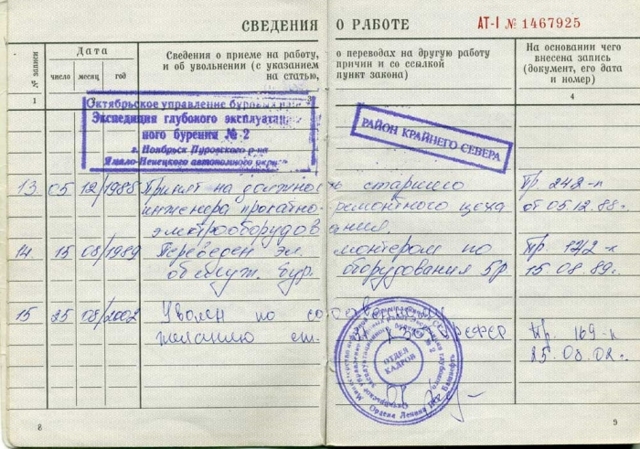 СВЕДЕНИЯ О РАБОТЕ
АТ-I № 1467925
№ записи
Дата
число месяц год
Сведения о приеме на работу, о переводах на другую работу
и об увольнении (с указанием причин и со ссылкой
на статью, пункт закона)
На основании чего
внесена запись
(документ, его дата
и номер)
1 4
Октябрьское управление буровых
Экспедиция глубокого эксплуатацион
ного бурения № 2
г. Ноябрьск Пуровского р-на
Ямало-Ненецкого автономного округа
РАЙОН КРАЙНЕГО СЕВЕРА
13 05 12/1988 Принят на должность старшего Пр. 242-п
инженера прокатно-ремонтного цеха от 05.12.88г.
электрооборудования.
14 15 08/1989 Переведен эл. монтером по Пр
обслуж. бур. оборудования 5р. 15.08.89г.
15 25 08/2002 Уволен по
желанию ст. Пр. 169-к
25.08.02г.
ОТДЕЛ
КАДРОВ
Ордена Ленина
8 9